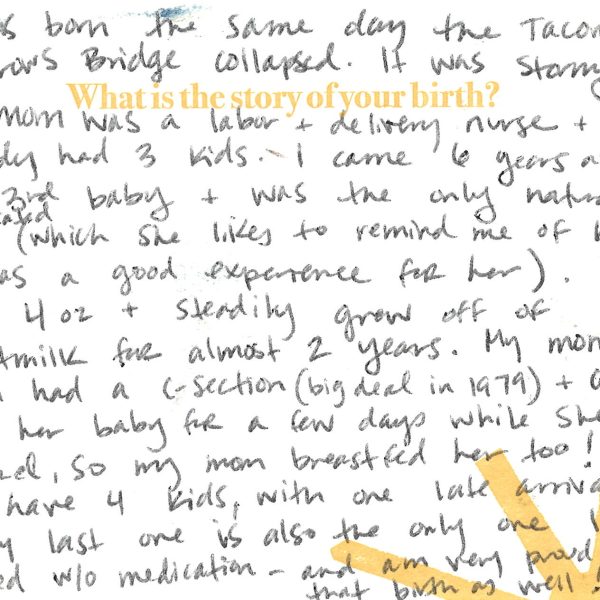 s born the same day the Tacom
rows Bridge collapsed. It was Stormy
What is the story of your birth?
mom was a labor + delivery nurse +
dy had 3 kids. I came 6 years a
3rd baby + was the only natu
(which she likes to remind me of
as a good experience for her).
4 oz + steadily grew off of
milk for almost 2 years. My mom
had a C-section (big deal in 1979) +
her baby for a few days while she
ed, so my mom breastfed her too!
have 4 kids, with one late arriva
y last one is also the only one
ed w/o medication - and am very proud
that birth as well!